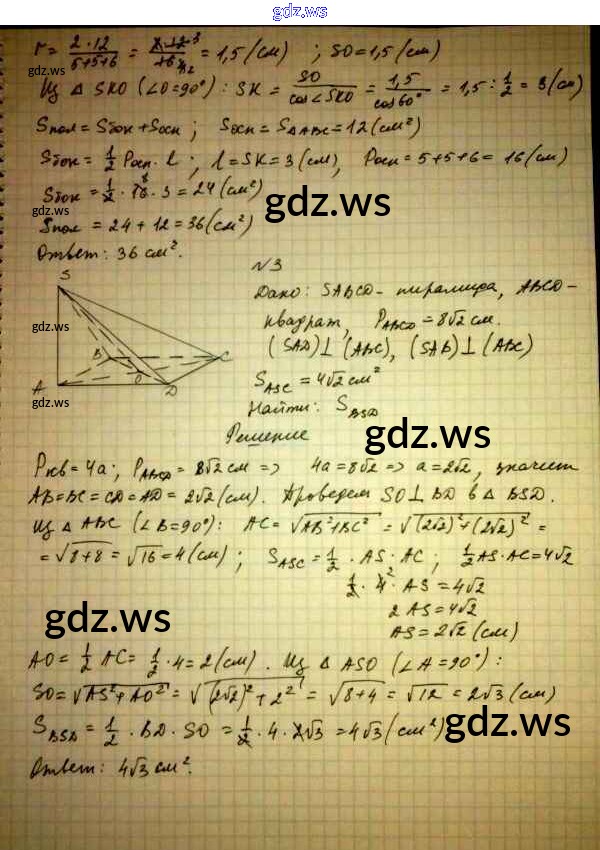 gdz.ws
r = 2·12/(5+5+6) = 2·12/16 = 1,5 (см) ; SO = 1,5 (см)
gdz.ws
Из △ SKO (∠O=90°) : SK = SO/cos∠SKO = 1,5/cos60° = 1,5 : 1/2 = 3 (см)
Sпол = Sбок + Sосн ; Sосн = S△ABC = 12 (см²)
Sбок = 1/2 Pосн · l ; l = SK = 3 (см), Pосн = 5+5+6 = 16 (см)
Sбок = 1/2 · 16 · 3 = 24 (см²)
gdz.ws
gdz.ws
Sпол = 24 + 12 = 36 (см²)
Ответ: 36 см².
N3
S
Дано: SABCD - пирамида, ABCD -
квадрат, PABCD = 8√2 см.
gdz.ws
(SAD) ⊥ (ABC), (SAB) ⊥ (ABC)
B C
O
A D
SASC = 4√2 см²
gdz.ws
Найти: SBSD
gdz.ws
Решение
Pкв = 4a ; PABCD = 8√2 см => 4a = 8√2 => a = 2√2, значит
AB = BC = CD = AD = 2√2 (см). Проведем SO ⊥ BD в △ BSD.
Из △ ABC (∠B = 90°): AC = √AB²+BC² = √(2√2)²+(2√2)² =
= √8+8 = √16 = 4 (см) ; SASC = 1/2 · AS · AC ; 1/2 AS · AC = 4√2
1/2 · 4 · AS = 4√2
gdz.ws
2 AS = 4√2
AS = 2√2 (см)
AO = 1/2 AC = 1/2 · 4 = 2 (см). Из △ ASO (∠A = 90°) :
SO = √AS²+AO² = √(2√2)²+2² = √8+4 = √12 = 2√3 (см)
SBSD = 1/2 · BD · SO = 1/2 · 4 · 2√3 = 4√3 (см²)
gdz.ws
Ответ: 4√3 см².
gdz.ws
gdz.ws